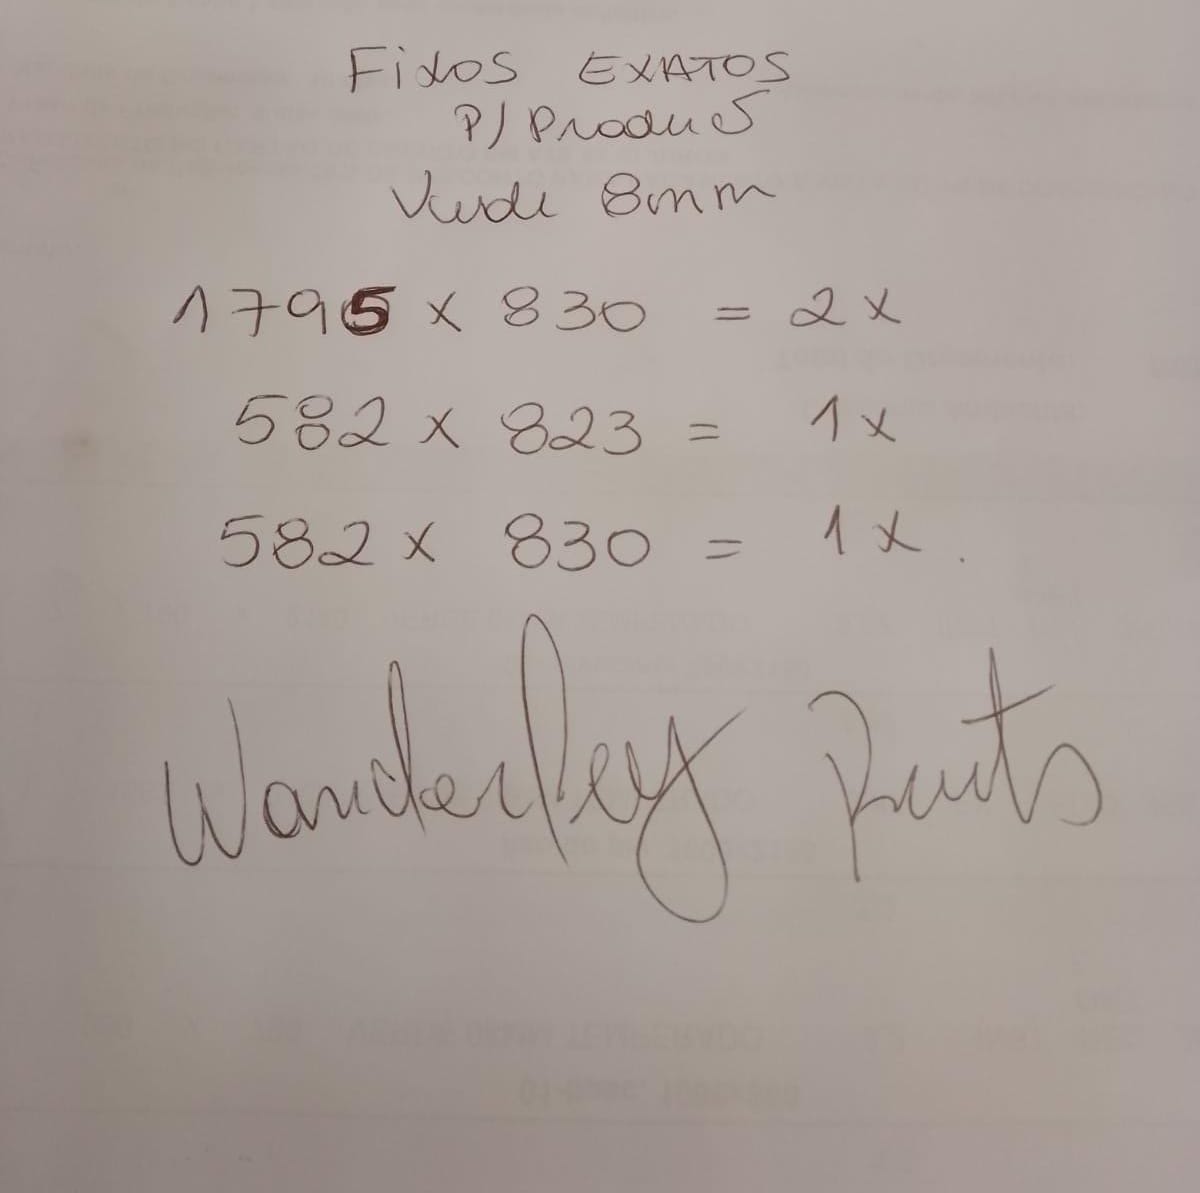 Fixos EXATOS
P/ Produz
Verde 8mm
1795 x 830 = 2x
582 x 823 = 1x
582 x 830 = 1x.
Wanderley